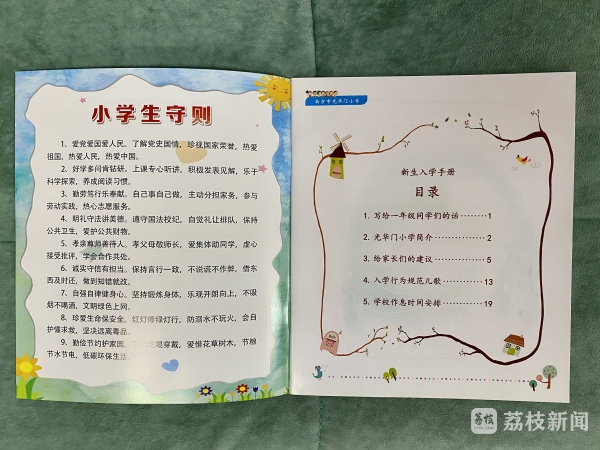 小学生守则
1、爱党爱国爱人民。了解党史国情，珍视国家荣誉，热爱
祖国，热爱人民，热爱中国。
2、好学多问肯钻研。上课专心听讲，积极发表见解，乐于
科学探索，养成阅读习惯。
3、勤劳笃行乐奉献。自己事自己做，主动分担家务，参与
劳动实践，热心志愿服务。
4、明礼守法讲美德。遵守国法校纪，自觉礼让排队，保持
公共卫生，爱护公共财物。
5、孝亲尊师善待人。孝父母敬师长，爱集体助同学，虚心
接受批评，学会合作共处。
6、诚实守信有担当。保持言行一致，不说谎不作弊，借东
西及时还，做到知错就改。
7、自强自律健身心。坚持锻炼身体，乐观开朗向上，不吸
烟不喝酒，文明绿色上网。
8、珍爱生命保安全。红灯停绿灯行，防溺水不玩火，会自
护懂求救，坚决远离毒品。
9、勤俭节约护家园。不比吃喝穿戴，爱惜花草树木，节粮
节水节电，低碳环保生活。
南京市光华门小学
新生入学手册
目录
1. 写给一年级同学们的话………1
2. 光华门小学简介………………2
3. 给家长们的建议………………5
4. 入学行为规范儿歌……………13
5. 学校作息时间安排……………19
荔枝
荔枝新闻